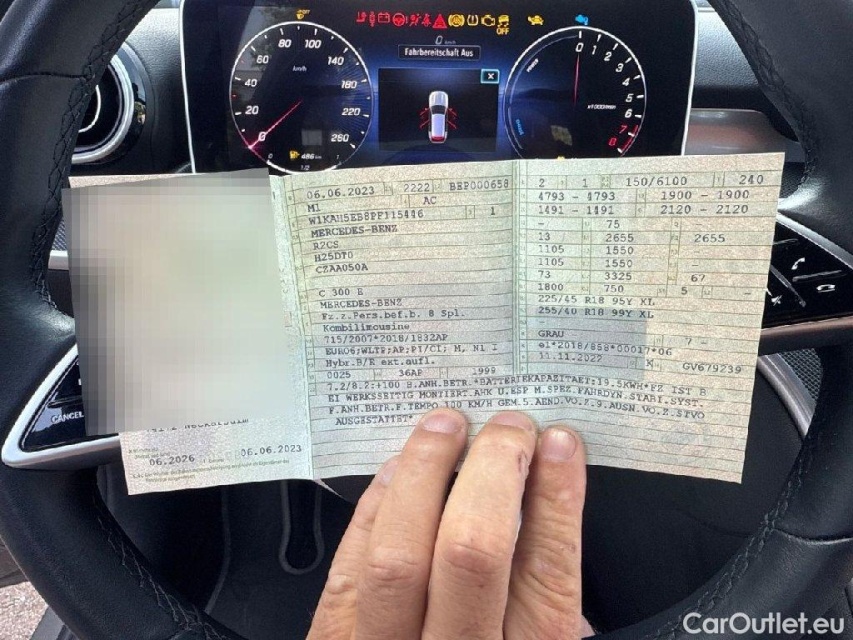 OFF
80 100
60 140
km/h
40 180
20 220
0 260
486 km
0 km/h
Fahrbereitschaft Aus
X
POWER
0 1 2 3 4 5 6 7 8
x1000/min
06.06.2023 2222 BEP000658
M1 AC
1
MERCEDES-BENZ
R2CS
H25DT0
CZAA050A
C 300 E
MERCEDES-BENZ
Fz.z.Pers.bef.b. 8 Spl.
Kombilimousine
715/2007*2018/1832AP
EURO6;WLTP;AP;PI/CI; M, N1 I
Hybr.B/E ext.aufl.
0025 36AP 1999
2 1 150/6100 240
4793 - 4793 1900 - 1900
1491 - 1491 2120 - 2120
- 75
13 2655 2655
1105 1550 -
1105 1550 -
73 3325 67
1800 750 5 -
225/45 R18 95Y XL
255/40 R18 99Y XL
GRAU 7 -
e1*2018/858*00017*06
K GV679239
7.2/8.2:+100 B.ANH.BETR.*BATTERIEKAPAZITAET:19.5KWH*FZ IST B
EI WERKSSEITIG MONTIERT.AHK U.ESP M.SPEZ.FAHRDYN.STABI.SYST.
F.ANH.BETR.F.TEMPO.100 KM/H GEM.5.AEND.VO.Z.9.AUSN.VO.Z.STVO
AUSGESTATTET*
06.2026 06.06.2023
CANCEL
CarOutlet.eu